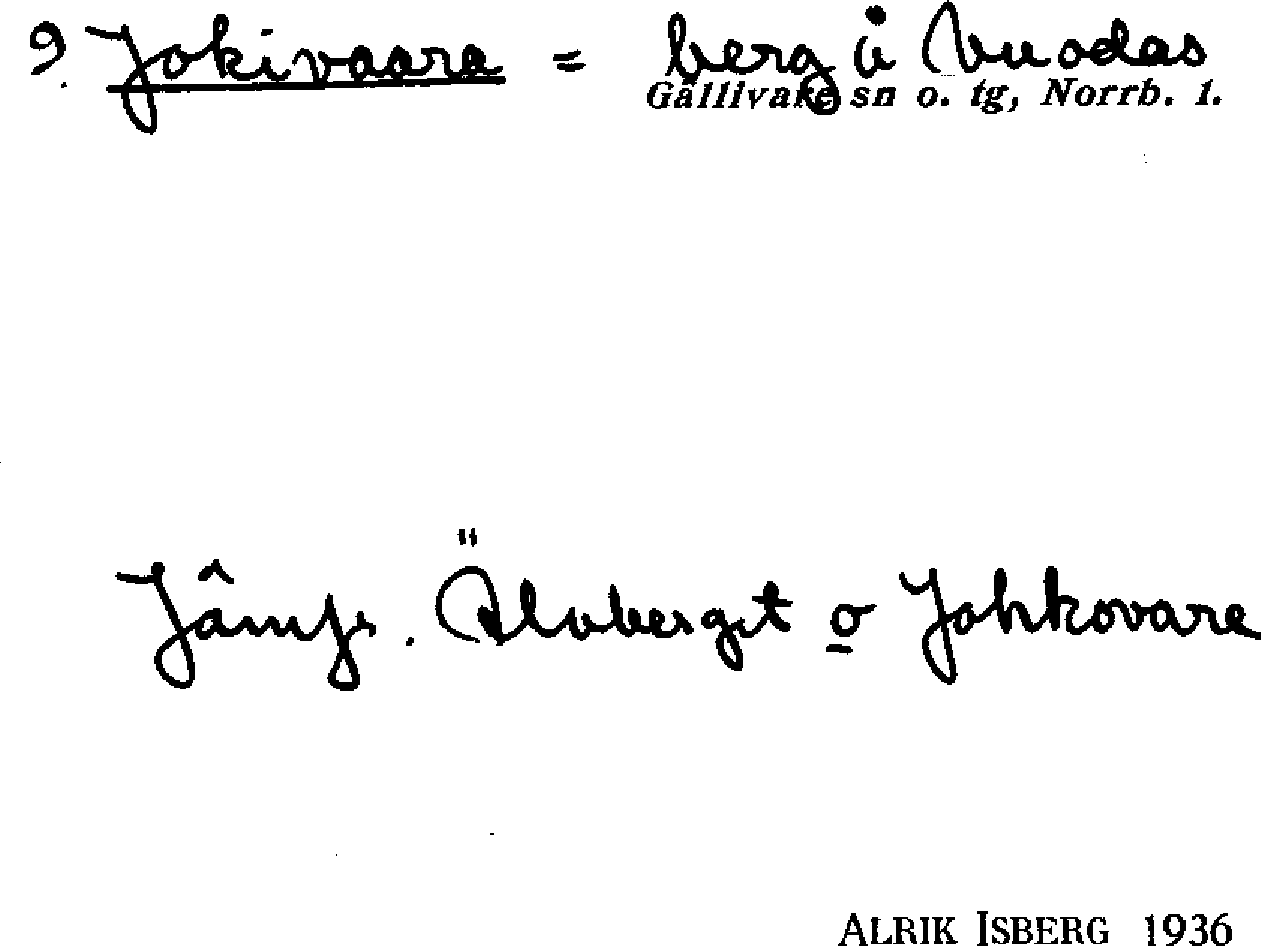 ? Jokivaara = berg i Vuodas
Gällivare sn o. tg, Norrb. l.
Jämf. Älvberget o Johkovare
ALRIK ISBERG 1936